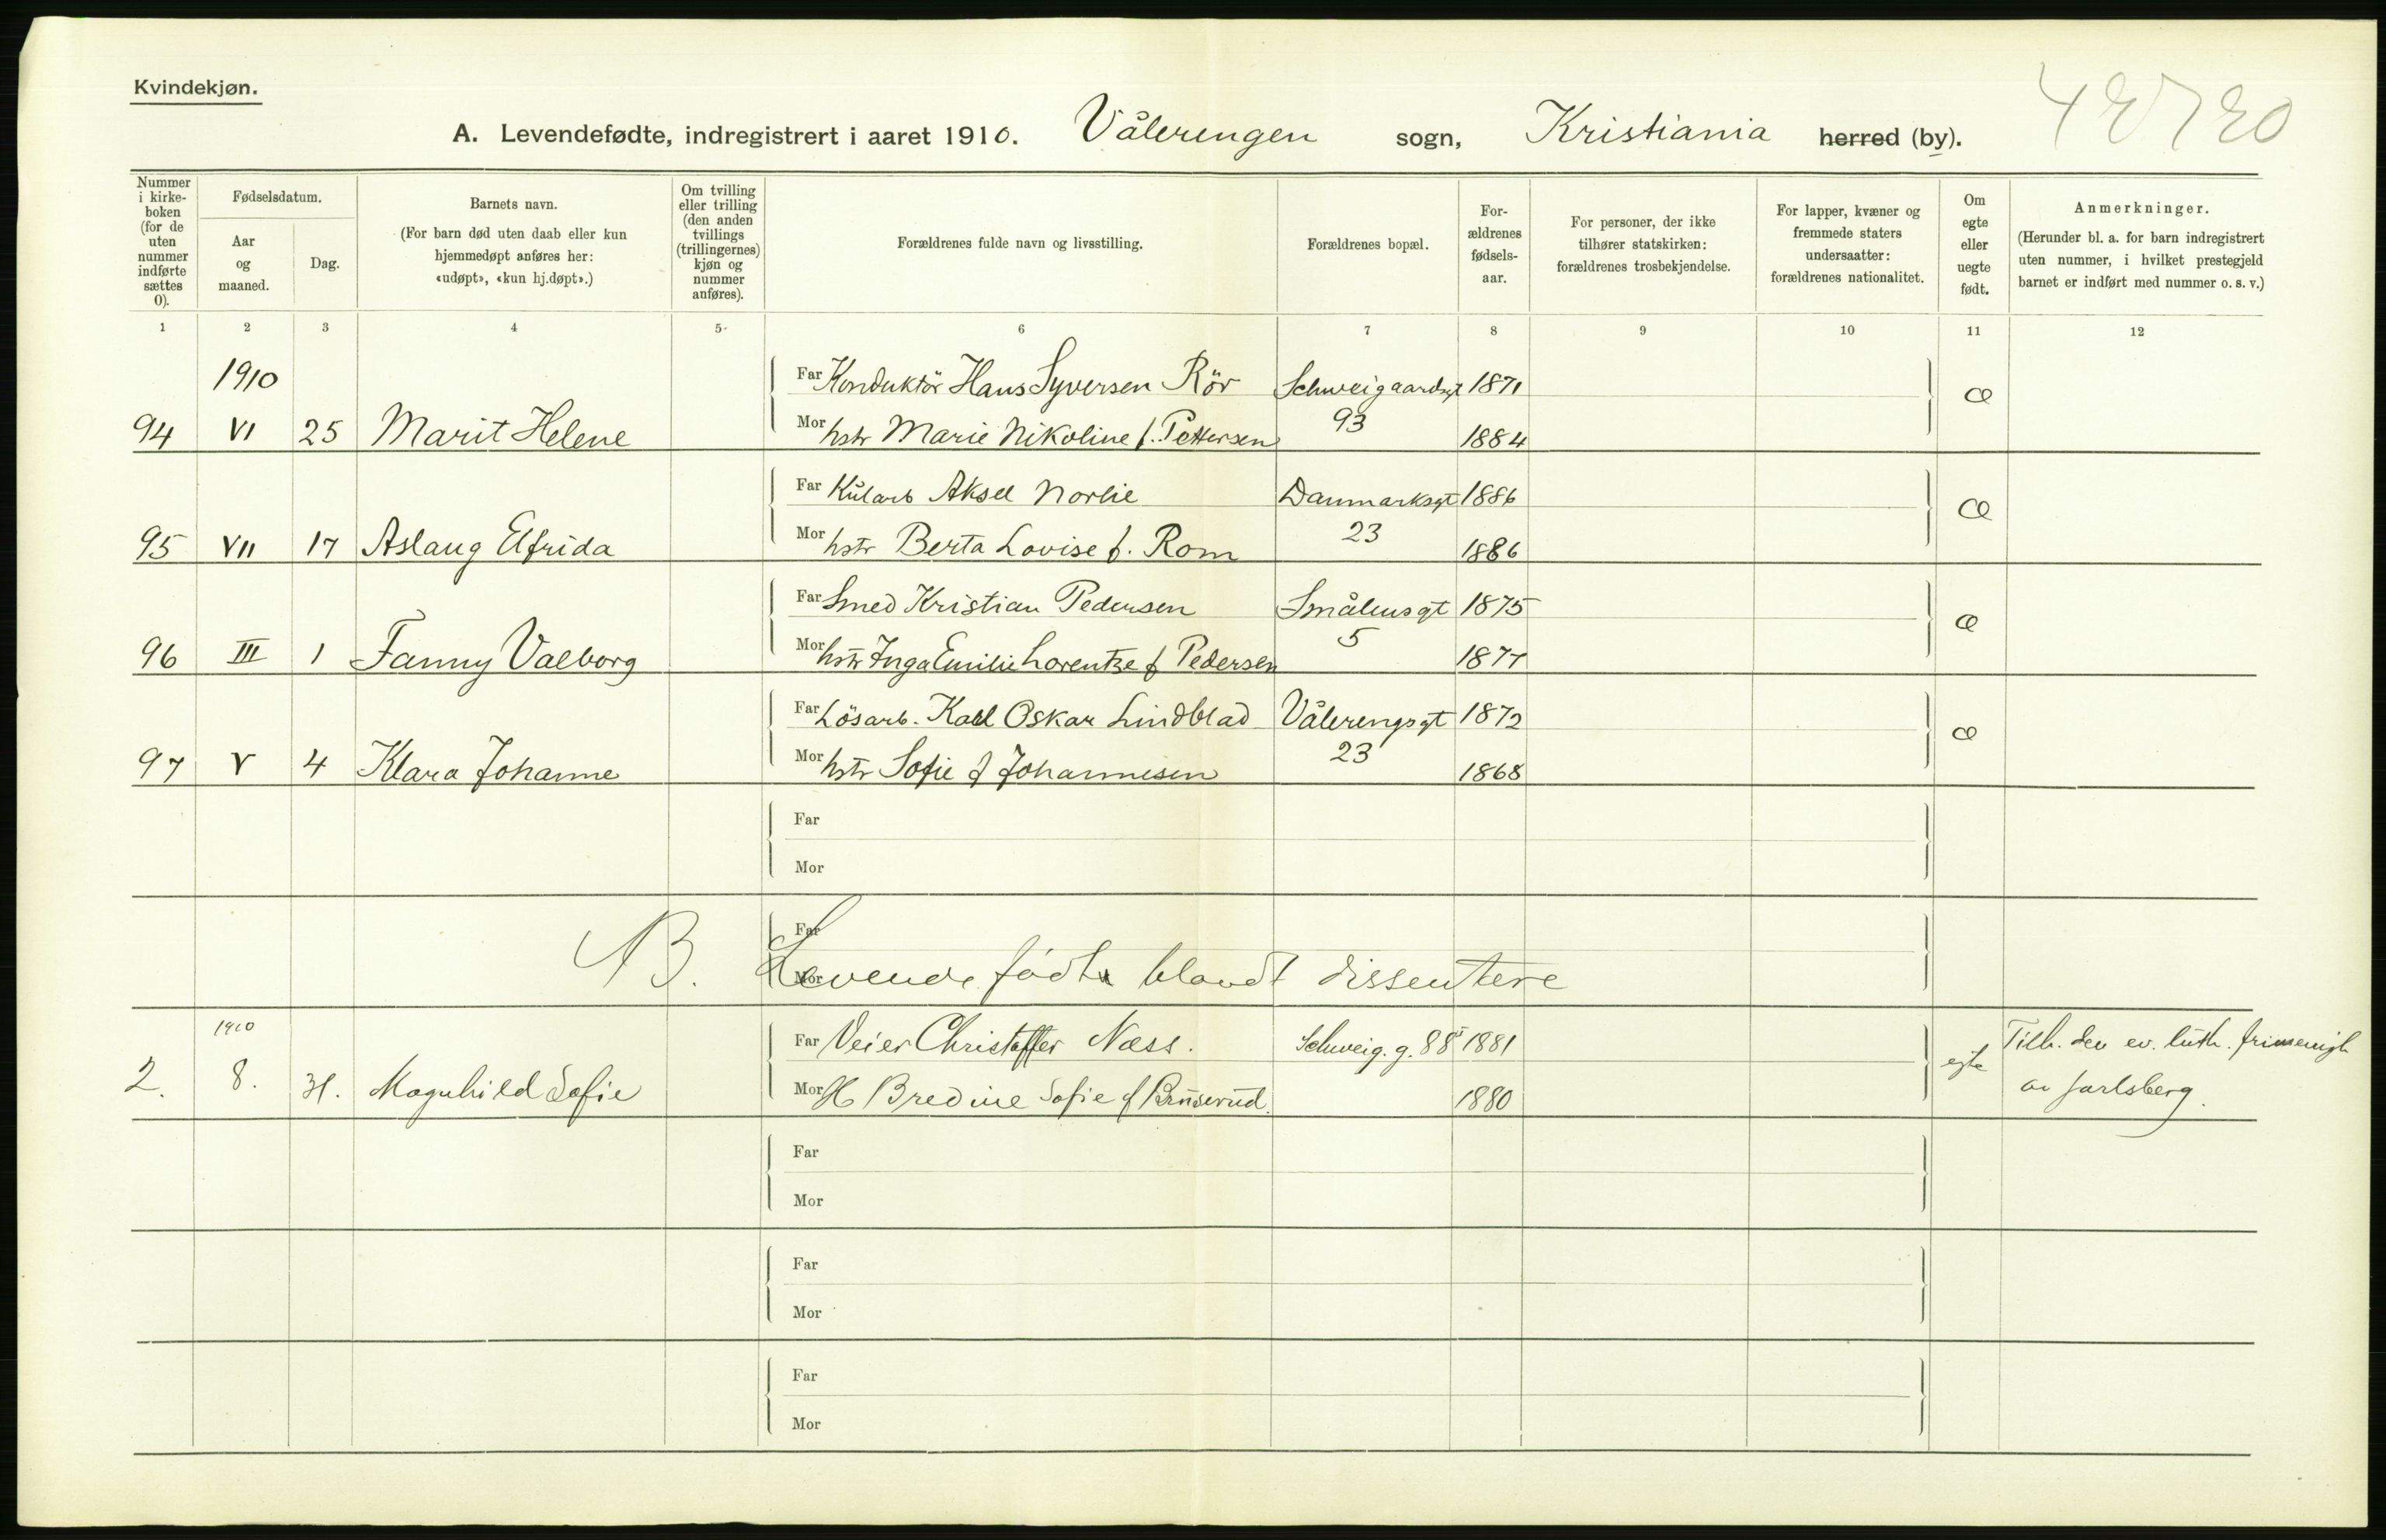 Kvindekjøn.
A. Levendefødte, indregistrert i aaret 1910. Vålerengen sogn, Kristiania herred (by).
Nummer i kirke-boken (for de uten nummer indførte sættes 0).
Fødselsdatum.
Aar og maaned.
Dag.
Barnets navn.
(For barn død uten daab eller kun hjemmedøpt anføres her: «udøpt», «kun hj.døpt».)
Om tvilling eller trilling (den anden tvillings (trillingernes) kjøn og nummer anføres).
Forældrenes fulde navn og livsstilling.
Forældrenes bopæl.
For-ældrenes fødsels-aar.
For personer, der ikke tilhører statskirken: forældrenes trosbekjendelse.
For lapper, kvæner og fremmede staters undersaatter: forældrenes nationalitet.
Om egte eller uegte født.
Anmerkninger.
(Herunder bl. a. for barn indregistrert uten nummer, i hvilket prestegjeld barnet er indført med nummer o. s. v.)
1 2 3 4 5 6 7 8 9 10 11 12
1910
Far Konduktör Hans Syversen Rör Schweigaardsgt 1871 æ
94 VI 25 Marit Helene Mor hstr Marie Nikoline f. Pettersen 93 1884
Far Kularb Aksel Norlie Danmarksgt 1886 æ
95 VII 17 Aslaug Elfrida Mor hstr Berta Lovise f. Rom 23 1886
Far Smed Kristian Pedersen Smålensgt 1875 æ
96 III 1 Fanny Valborg Mor hstr Inga Emilie Lorentze f Pedersen 5 1877
Far Lösarb. Karl Oskar Lindblad Vålerengsgt 1872 æ
97 V 4 Klara Johanne Mor hstr Sofie f Johannesen 23 1868
Far
Mor
Far
Mor
B. Levende födte blandt dissentere
1910
Far Veier Christoffer Næss. Schweig. g. 88 1881 egte Tilh. den ev. luth. frimenigh
2. 8. 31. Magnhild Sofie Mor H Bredine Sofie f 1880 av Jarlsberg.
Far
Mor
Far
Mor
Far
Mor